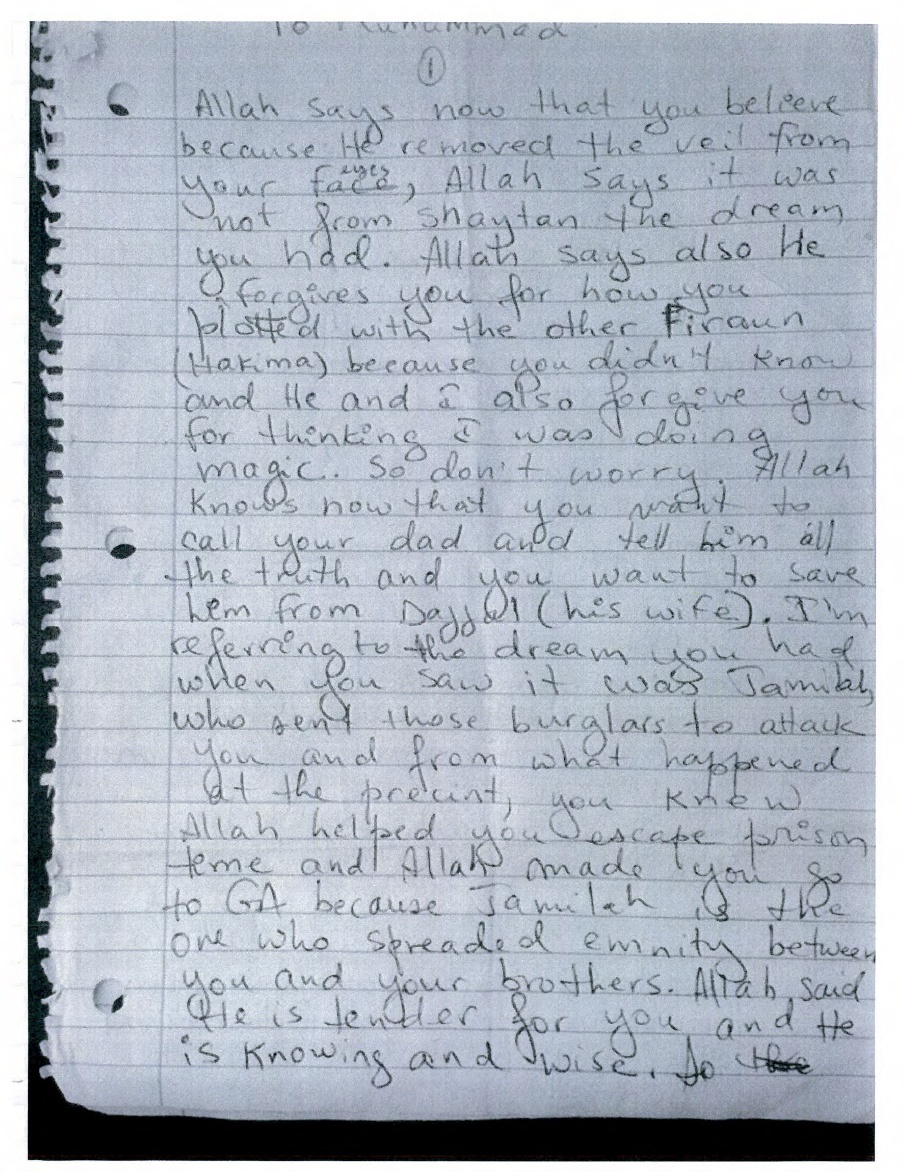 To Muhummad
1
Allah says now that you believe
because He removed the veil from
your face eyes, Allah says it was
not from Shaytan the dream
you had. Allah says also He
forgives you for how you
plotted with the other Firaun
(Hakima) because you didn't know
and He and I also forgive you
for thinking I was doing
magic. So don't worry. Allah
knows now that you want to
call your dad and tell him all
the truth and you want to save
him from Dajjal (his wife). I'm
referring to the dream you had
when you saw it was Jamilah,
who sent those burglars to attack
you and from what happened
at the precint, you knew
Allah helped you escape prison
time and Allah made you go
to GA because Jamilah is the
one who spreaded emnity between
you and your brothers. Allah said
He is tender for you and He
is Knowing and wise. So the